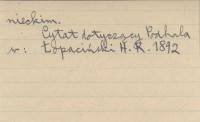 nieckim.
Cytat dotyczący Podhala
w: Łopaciński H. R. 1892